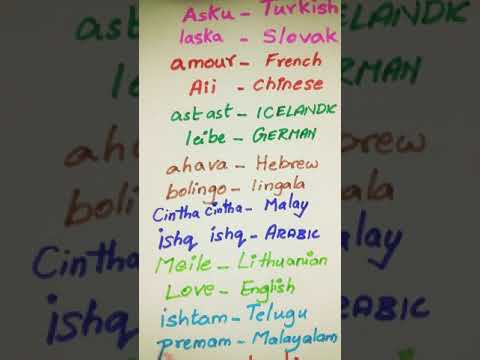 Asku - Turkish
laska - Slovak
amour - French
Aii - chinese
ast ast - ICELANDIC
leibe - GERMAN
ahava - Hebrew
bolingo - lingala
Cintha cintha - Malay
ishq ishq - ARABIC
Meile - Lithuanian
Love - English
ishtam - Telugu
premam - Malayalam